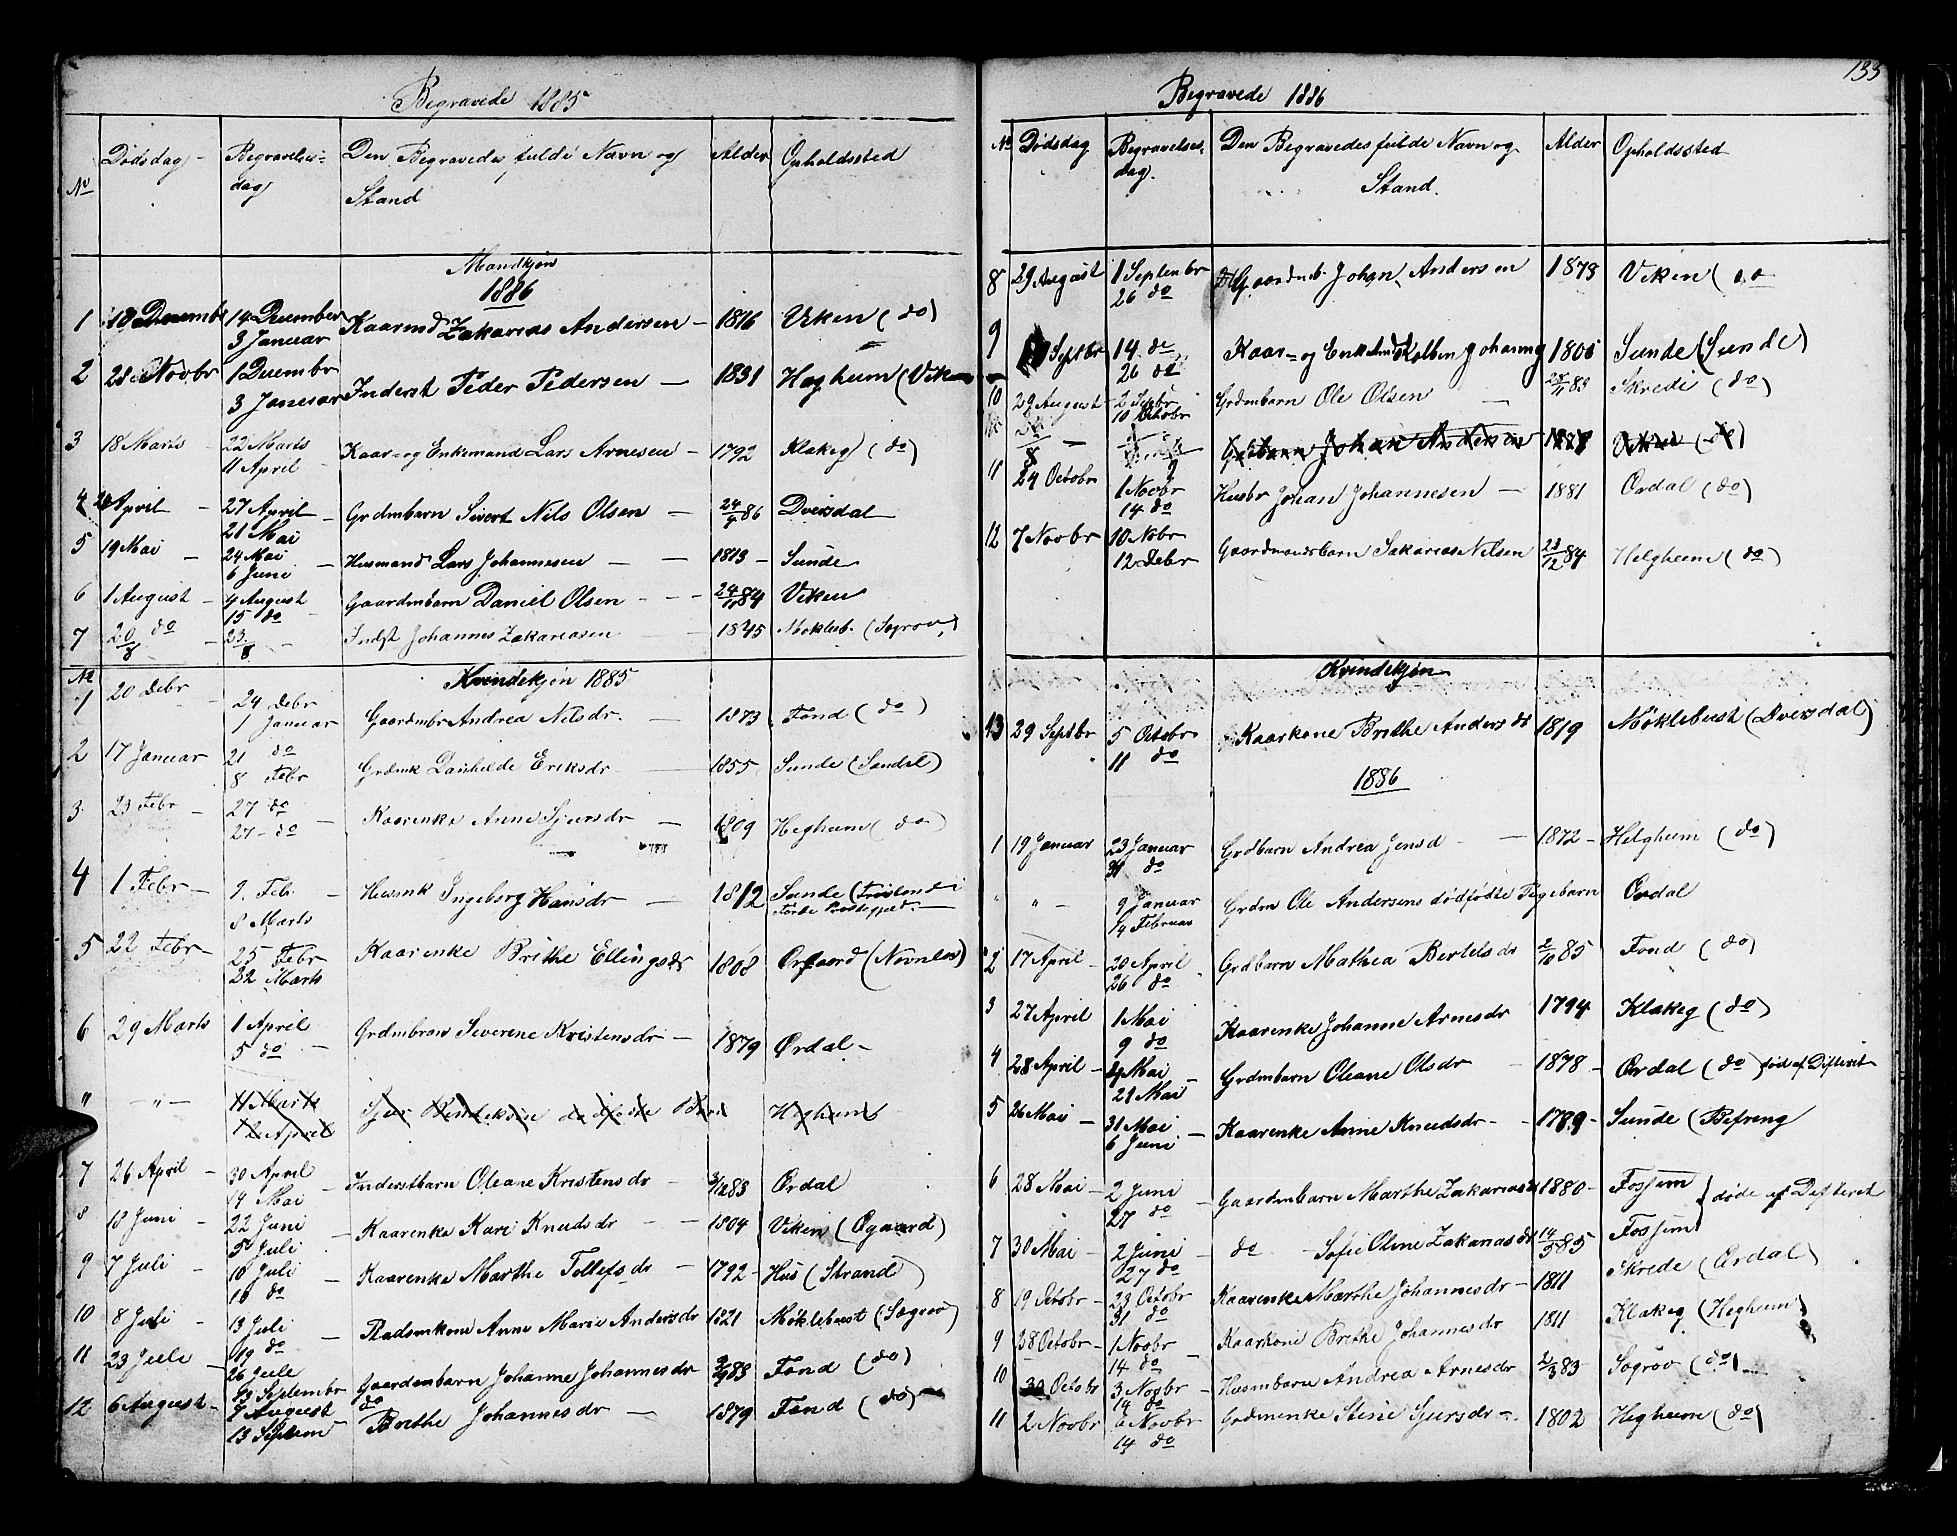 Begravede 1885
No Dødsdag Begravelses- dag Den Begravedes fulde Navn og Stand Alder Opholdssted
Mandkjøn
1886
1 10 Decembr 14 December 3 Januar Kaarmd Zakarias Andersen 1816 Viken (do)
2 28 Novbr 1 Decembr 3 Januar Inderst Peder Pedersen 1831 Heghum (Viken
3 18 Marts 22 Marts 11 April Kaar- og Enkemand Lars Arnesen 1792 Klakeg (do)
4 20 April 27 April 21 Mai Grdmbarn Sivert Nils Olsen 24/4 86 Dversdal
5 19 Mai 24 Mai 6 Juni Husmand Lars Johannesen 1813 Sunde
6 1 August 4 August 15 do Gaardmbarn Daniel Olsen 24/11 84 Viken
7 20/8 do 23/8 Indst Johannes Zakariasen 1845 Mokleb. (Søgrov)
No Kvindekjøn 1885
1 20 Debr 24 Debr 1 Januar Gaardmbr Andrea Nilsdr. 1873 Fond (do)
2 17 Januar 21 do 8 Febr Grdmk Danhilde Eriksdr 1855 Sunde (Sandal)
3 23 Febr 27 do 27 do Kaarenke Anne Sjursdr 1809 Heghum (do)
4 1 Febr 9. Feb. 8 Marts Husmk Ingeborg Hansdr 1812 Sunde (Frøland i Førde Prestegjeld.
5 22 Febr 25 Febr 22 Marts Kaarenke Brithe Ellingsdr 1808 Ørgaard (Novnles)
6 29 Marts 1 April 5 do Grdmbran Severene Kristensdr 1879 Ørdal
" " 11 Marts 12 April Sjur Bendiksens dødfødte Barn Heghum
7 26 April 30 April 19 Mai Inderstbarn Oleane Kristensdr 3/12 83 Ørdal
8 18 Juni 22 Juni 5 Juli Kaarenke Kari Knudsdr 1804 Viken (Øgaard)
9 7 Juli 10 Juli 18 do Kaarenke Marthe Tollefsdr 1792 Hus (Strand)
10 8 Juli 13 Juli 19 do Pladsmkone Anne Marie Andersdr 1821 Møklebust (Søgrov)
11 23 Juli 26 Jule 13 Septembr Gaardmbarn Johanne Johannesdr 3/9 83 Fond (do)
12 6 August 7 August 13 Septem do Brithe Johannesdr 1879 Fond (do)
133
Begravede 1886
No Dødsdag Begravelses- dag. Den Begravedes fulde Navn og Stand. Alder Opholdssted
8 29 August 1 Septembr 26 do Gaardmb. Johan Andersen 1878 Viken (do
9 Septbr 14 do 26 do Kaar- og Enkemd Kolben Johannes 1806 Sunde (Sunde)
10 29 August 2 Sepbr 10 Octobr Grdmbarn Ole Olsen 28/11 83 Skredi (do)
Grdbarn Johan Andersen 1878 Viken (do)
11 24 Octobr 1 Novbr 14 do Husbr Johan Johannesen 1881 Ørdal (do)
12 7 Novbr 10 Nobr 12 Debr Gaardmandsbarn Sakarias Nilsen 23/12 84 Helgheim (do)
Kvindekjøn
13 29 Septbr 5 Octobr 11 do Kaarkone Brithe Andersdr 1819 Møklebust (Dversdal)
1886
1 19 Januar 23 Januar 31 do Grdbarn Andrea Jensd 1872 Helgheim (do)
" " 9 Januar 14 Februar Grdm Ole Andersens dødfødte Pigebarn Ørdal
2 17 April 20 April 26 do Grdbarn Mathea Bertelsdr 2/10 85 Fond (do)
3 27 April 1 Mai 9 do Kaarenke Johanne Arnesdr 1794 Klakeg (do)
4 28 April 4 Mai 21 Mai Grdmbarn Oleane Olsdr 1878 Ørdal (do) død af Difterit
5 26 Mai 31 Mai 6 Juni Kaarenke Anne Knudsdr 1789 Sunde (Befring
6 28 Mai 2 Juni 27 do Gaardmbarn Marthe Zakariasd 1880 Fossum
døde af Difterit
7 30 Mai 2 Juni 27 do do Sofie Oline Zakariasdr 14/5 85 Fossum
8 19 Octobr 23 Octobr 31 do Kaarenke Marthe Johannesdr 1811 Skrede (Ørdal)
9 28 Octobr 1 Novbr 14 do Kaarkone Brithe Johannesdr 1811 Klakeg (Heghum)
10 30 Octobr 3 Novbr 14 do Husmbarn Andrea Arnesdr 2/3 83 Søgrov (do)
11 2 Novbr 6 Novbr 14 do Grdmenke Stine Sjursdr 1802 Heghum (do)